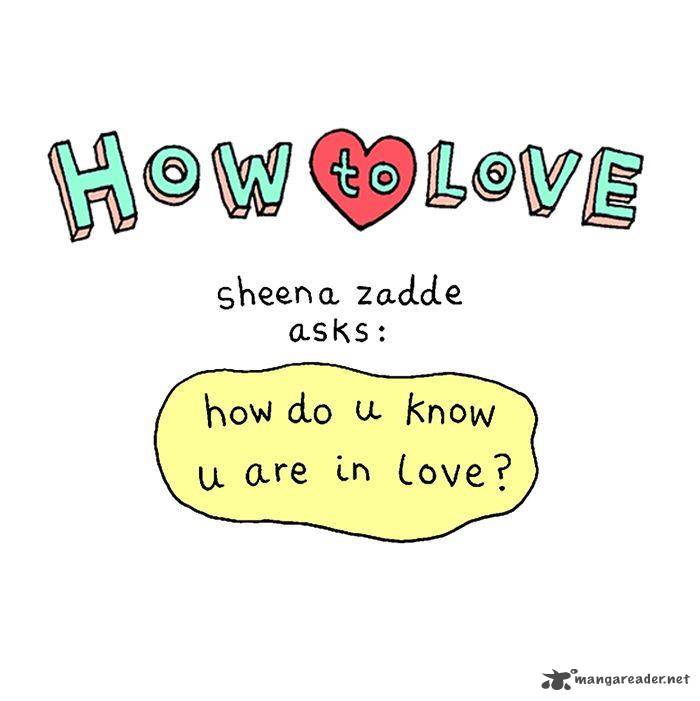 HOW to LOVE
sheena zadde
asks:
how do u know
u are in love?
mangareader.net